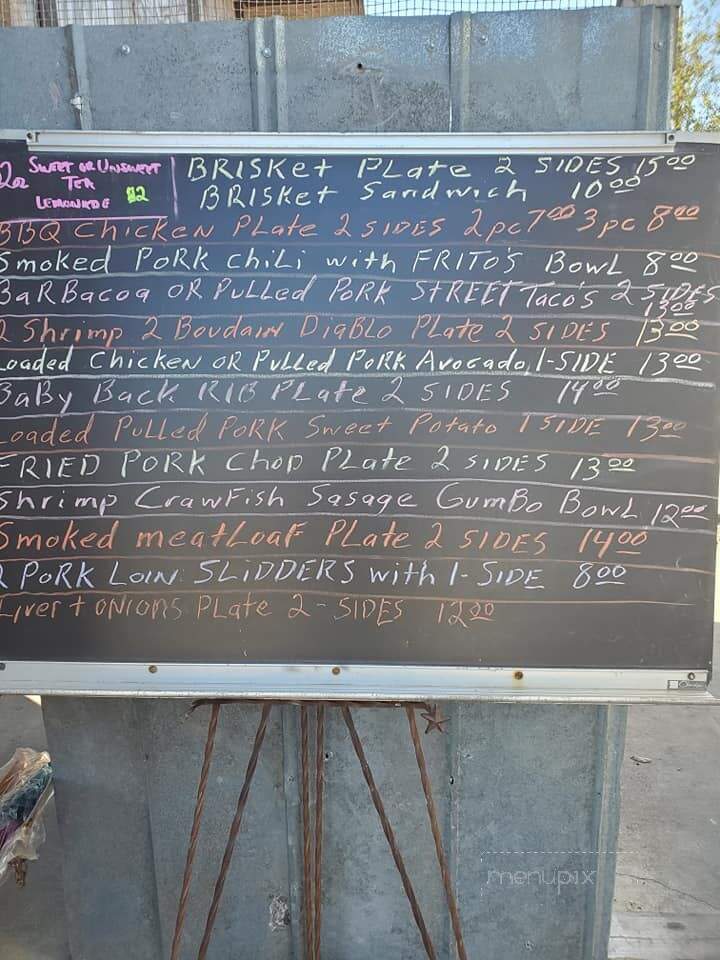 SWEET OR UNSWEET
TEA
LEMONADE $2
BRISKet PLate 2 SIDES 15 00
BRISKet Sandwich 10 00
BBQ Chicken PLate 2 SIDES 2pc 7 00 3pc 8 00
Smoked PORK chiLi with FRITO'S BowL 8 00
BaRBacoa OR PuLLed PoRK StREET Taco's 2 SIDES
13 00
2 Shrimp 2 Boudain DiaBLo PLate 2 SIDES 13 00
Loaded Chicken OR PuLLed PoRK Avocado, 1-SIDE 13 00
BaBy Back RIB PLate 2 SIDES 14 00
Loaded PuLLed PoRK Sweet Potato 1 SIDE 13 00
FRIED PORK Chop PLate 2 SIDES 13 00
Shrimp CrawFish Sasage GumBo BowL 12 00
Smoked meatLoaF PLate 2 SIDES 14 00
2 PoRK LOIN SLIDDERS with 1-SIDE 8 00
Liver + ONIONS PLate 2-SIDES 12 00
menupix